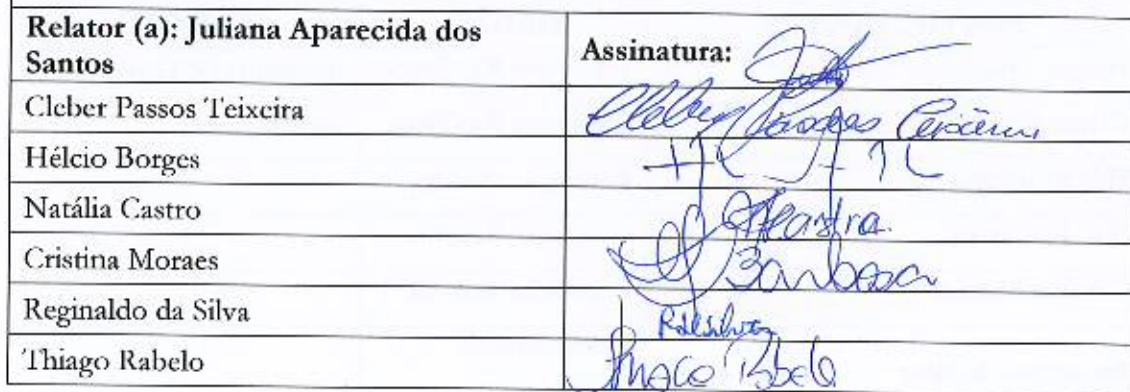 Relator (a): Juliana Aparecida dos
Santos
Assinatura:
Cleber Passos Teixeira
Cleber Passos Teixeira
Hélcio Borges
Natália Castro
Castro
Cristina Moraes
Barbosa
Reginaldo da Silva
RdaSilva
Thiago Rabelo
Thiago Rabelo